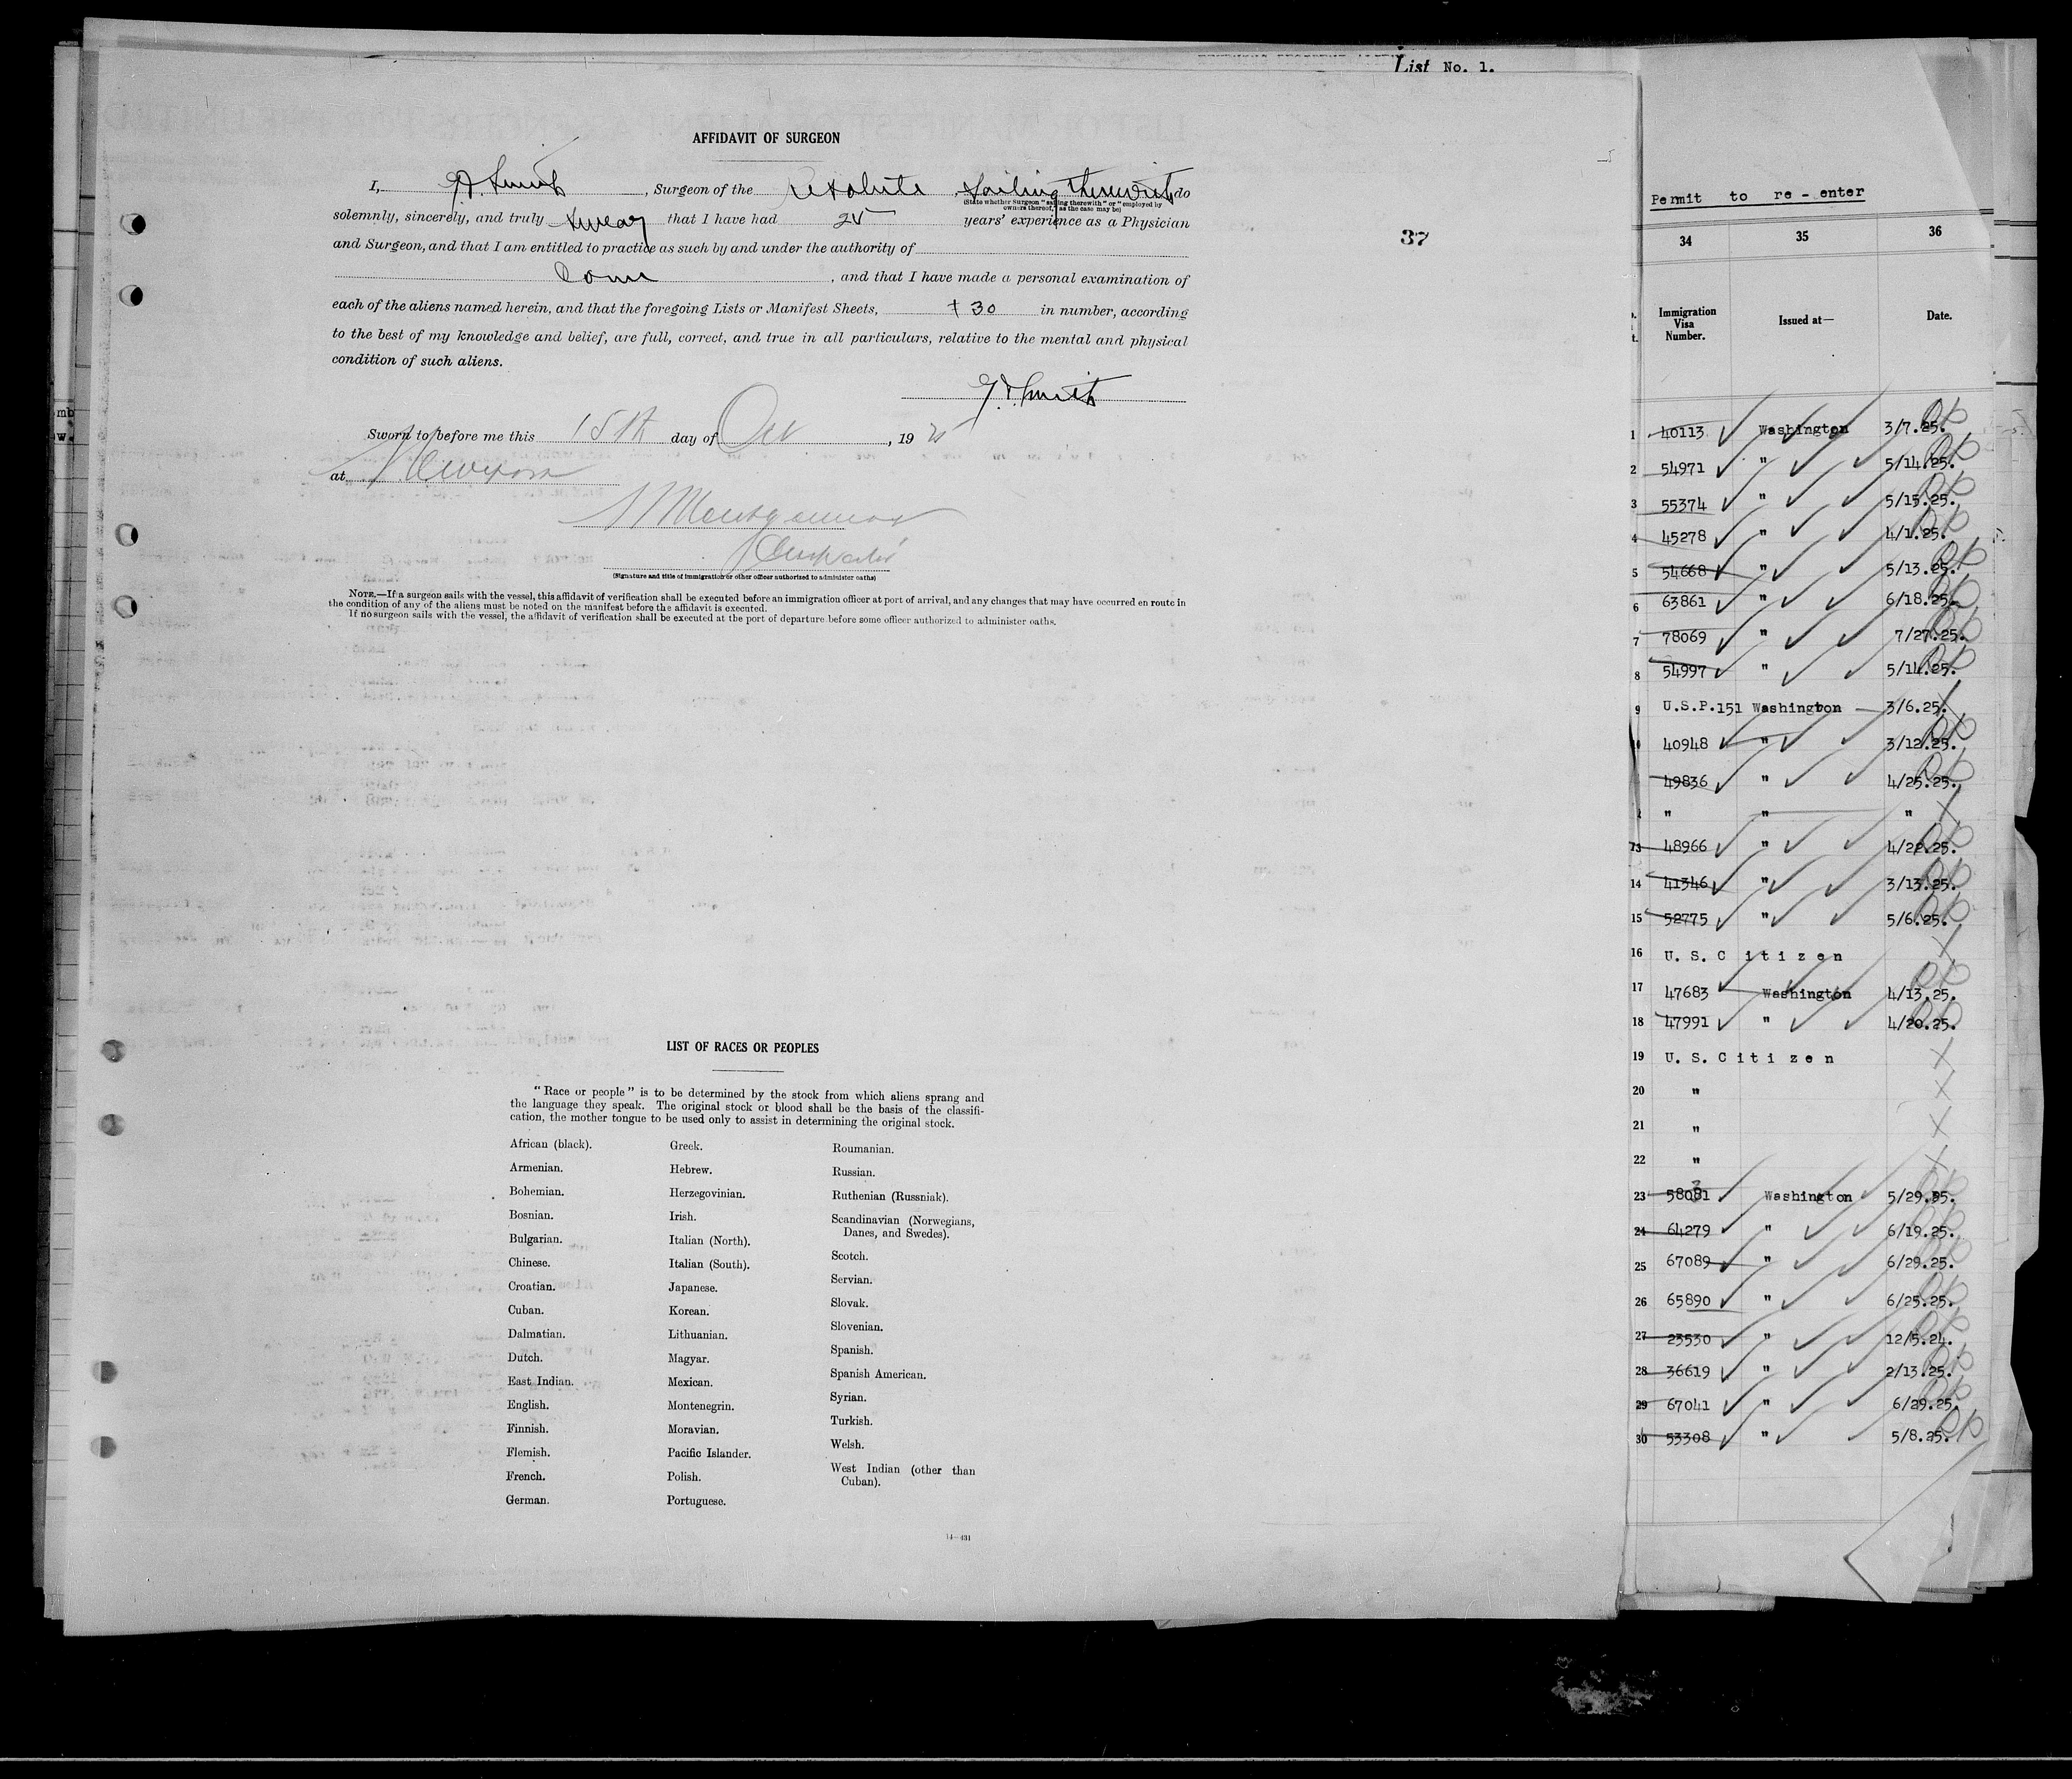 List No. 1.
AFFIDAVIT OF SURGEON
I, G. Smith, Surgeon of the Resolute sailing therewith do
(State whether Surgeon "sailing therewith" or "employed by
owners thereof," as the case may be)
solemnly, sincerely, and truly swear that I have had 25 years' experience as a Physician
and Surgeon, and that I am entitled to practice as such by and under the authority of
Conn, and that I have made a personal examination of
each of the aliens named herein, and that the foregoing Lists or Manifest Sheets, + 30 in number, according
to the best of my knowledge and belief, are full, correct, and true in all particulars, relative to the mental and physical
condition of such aliens.
Smith
Sworn to before me this 15th day of Oct, 19 25
at
Montgomery
Inspector
(Signature and title of immigration or other officer authorized to administer oaths)
NOTE.—If a surgeon sails with the vessel, this affidavit of verification shall be executed before an immigration officer at port of arrival, and any changes that may have occurred en route in
the condition of any of the aliens must be noted on the manifest before the affidavit is executed.
If no surgeon sails with the vessel, the affidavit of verification shall be executed at the port of departure before some officer authorized to administer oaths.
37
LIST OF RACES OR PEOPLES
"Race or people" is to be determined by the stock from which aliens sprang and
the language they speak. The original stock or blood shall be the basis of the classifi-
cation, the mother tongue to be used only to assist in determining the original stock.
African (black).
Armenian.
Bohemian.
Bosnian.
Bulgarian.
Chinese.
Croatian.
Cuban.
Dalmatian.
Dutch.
East Indian.
English.
Finnish.
Flemish.
French.
German.
Greek.
Hebrew.
Herzegovinian.
Irish.
Italian (North).
Italian (South).
Japanese.
Korean.
Lithuanian.
Magyar.
Mexican.
Montenegrin.
Moravian.
Pacific Islander.
Polish.
Portuguese.
Roumanian.
Russian.
Ruthenian (Russniak).
Scandinavian (Norwegians,
Danes, and Swedes).
Scotch.
Servian.
Slovak.
Slovenian.
Spanish.
Spanish American.
Syrian.
Turkish.
Welsh.
West Indian (other than
Cuban).
14—431
Permit to re - enter
34 35 36
Immigration
Visa
Number.
Issued at—
Date.
1 40113 Washington 3/7.25.
2 54971 " 5/14.25.
3 55374 " 5/15.25.
4 45278 " 4/1.25.
5 54668 " 5/13.25.
6 63861 " 6/18.25.
7 78069 " 7/27.25.
8 54997 " 5/14.25.
9 U.S.P.151 Washington 3/6.25.
40948 " 3/12.25.
49836 " 4/25.25.
" " "
13 48966 " 4/22.25.
14 41346 " 3/13.25.
15 52775 " 5/6.25.
16 U. S. C i t i z e n
17 47683 Washington 4/13.25.
18 47991 " 4/20.25.
19 U. S. C i t i z e n
20 "
21 "
22 "
23 58081 Washington 5/29.25.
24 64279 " 6/19.25.
25 67089 " 6/29.25.
26 65890 " 6/25.25.
27 23530 " 12/5.24.
28 36619 " 2/13.25.
29 67041 " 6/29.25.
30 53308 " 5/8.25.